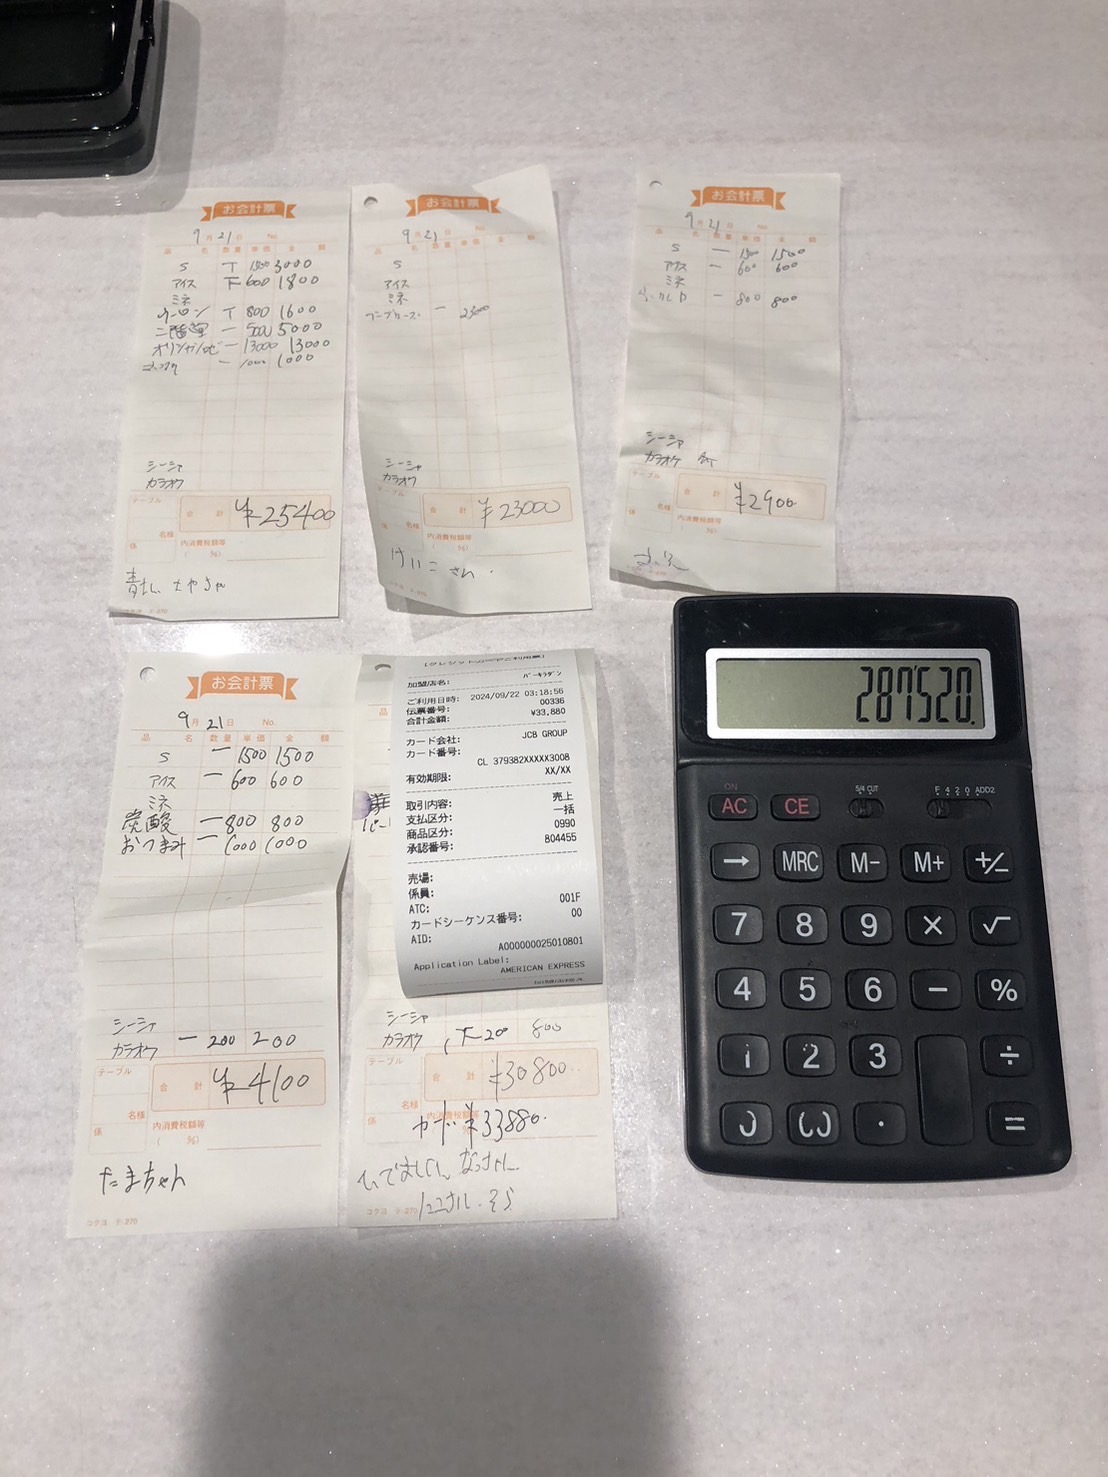 お会計票
9月21日 No.
品 名 数量 単価 金 額
S T 1500 3000
アイス 下 600 1800
ミネ
ウーロン T 800 1600
二階堂 一 5000 5000
オリシャンパン 一 13000 13000
一 1000 1000
シーシャ
カラオケ
テーブル
合 計 ¥25400
名様
係
内消費税額等
( %)
青払い
コクヨ テ-270
お会計票
9月21日
数量 単価 金 額
S
アイス
ミネ
一 23000
シーシャ
カラオケ
テーブル
合 計 ¥23000
係 名様
内消費税額等
( %)
けいこさん
お会計票
9月21日 No.
品 名 数量 単価 金 額
S 一 1500 1500
アイス 一 600 600
ミネ
一 800 800
シーシャ
カラオケ
テーブル
合 計 ¥2900
係 名様
内消費税額等
( %)
お会計票
9月21日 No.
品 名 数量 単価 金 額
S 一 1500 1500
アイス 一 600 600
ミネ
炭酸 一 800 800
おつまみ 一 1000 1000
シーシャ
カラオケ 一 200 200
テーブル
合 計 ¥4100
名様
係
内消費税額等
( %)
たまちゃん
コクヨ テ-270
[クレジットカードご利用票]
加盟店名: バーキラダン
ご利用日時: 2024/09/22 03:18:56
伝票番号: 00336
合計金額: ¥33,880
カード会社: JCB GROUP
カード番号:
CL 379382XXXXX3008
有効期限: XX/XX
取引内容: 売上
支払区分: 一括
商品区分: 0990
承認番号: 804455
売場:
係員:
ATC: 001F
カードシーケンス番号: 00
AID:
A000000025010801
Application Label:
AMERICAN EXPRESS
品
シーシャ
カラオケ 下 20 800
テーブル
合 計 ¥30800
名様
係
内消費税額等
カード ¥33880.
コクヨ テ-270
287'520.
ON
AC CE 5/4 CUT F 4 2 0 ADD2
→ MRC M- M+ +/-
7 8 9 × √
4 5 6 − %
1 2 3 ÷
0 00 · =